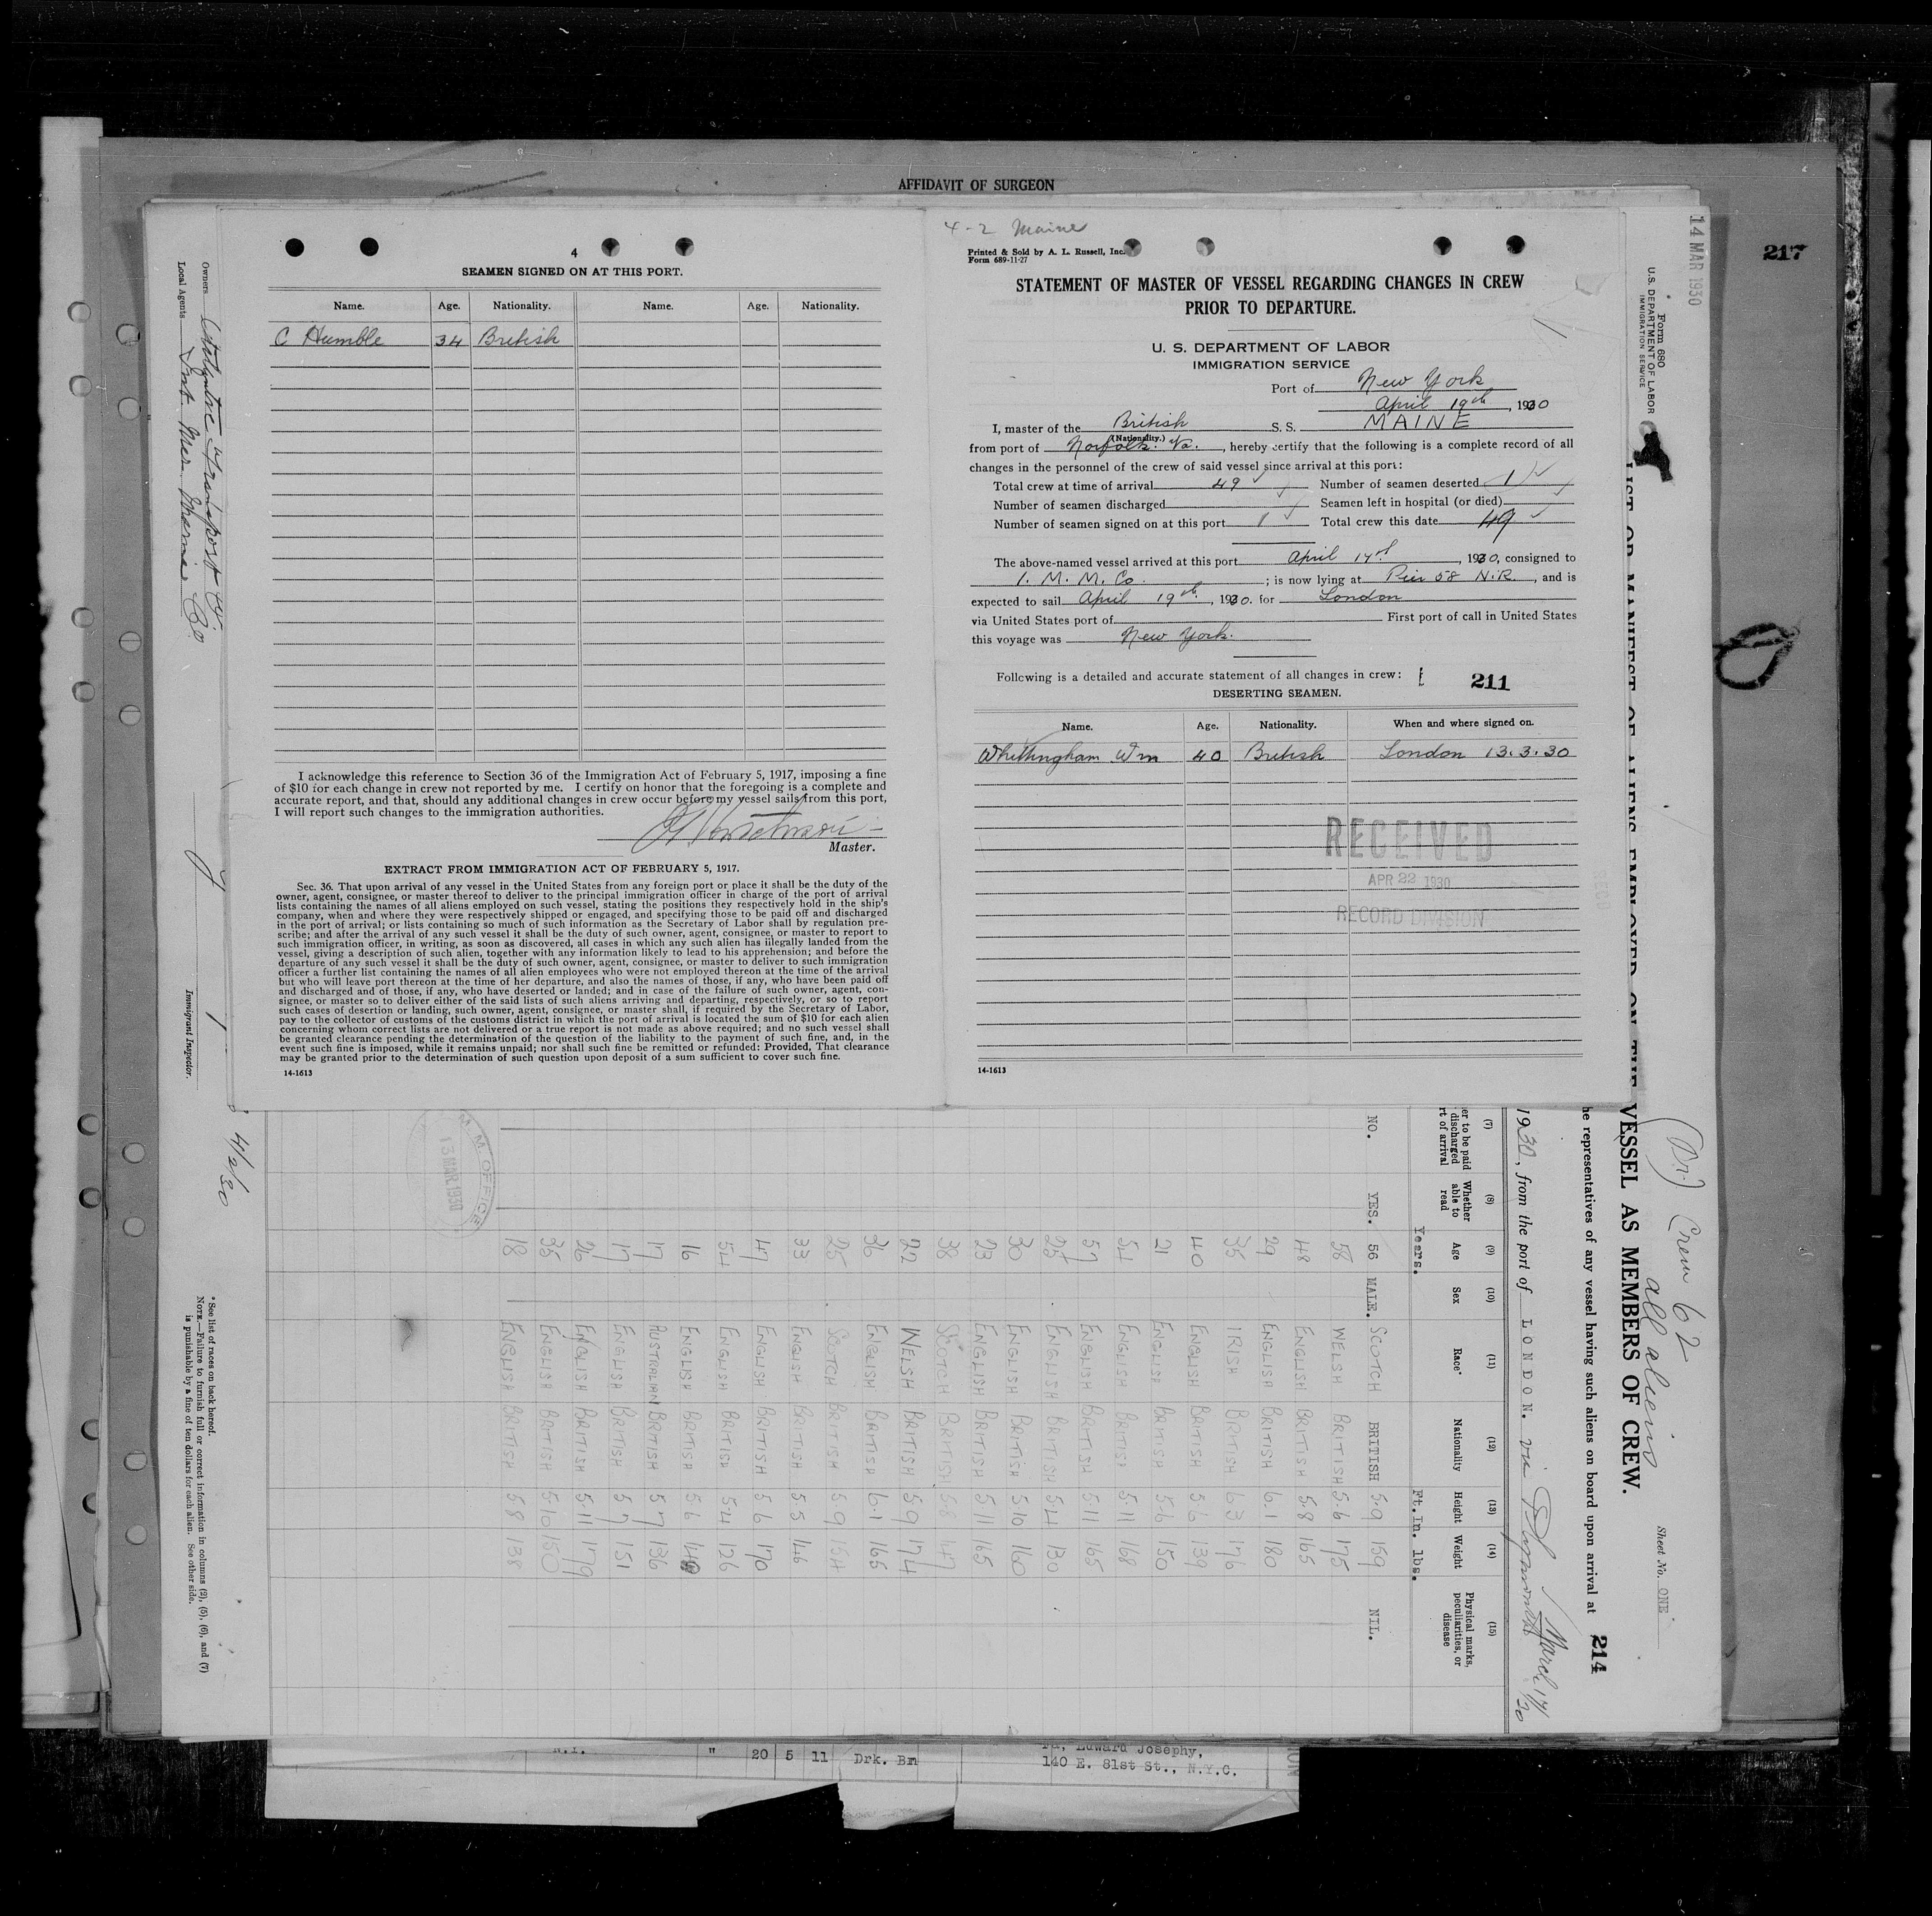 AFFIDAVIT OF SURGEON
217
4
SEAMEN SIGNED ON AT THIS PORT.
Name. Age. Nationality. Name. Age. Nationality.
C Humble 34 British
I acknowledge this reference to Section 36 of the Immigration Act of February 5, 1917, imposing a fine
of $10 for each change in crew not reported by me. I certify on honor that the foregoing is a complete and
accurate report, and that, should any additional changes in crew occur before my vessel sails from this port,
I will report such changes to the immigration authorities.
Master.
EXTRACT FROM IMMIGRATION ACT OF FEBRUARY 5, 1917.
Sec. 36. That upon arrival of any vessel in the United States from any foreign port or place it shall be the duty of the
owner, agent, consignee, or master thereof to deliver to the principal immigration officer in charge of the port of arrival
lists containing the names of all aliens employed on such vessel, stating the positions they respectively hold in the ship's
company, when and where they were respectively shipped or engaged, and specifying those to be paid off and discharged
in the port of arrival; or lists containing so much of such information as the Secretary of Labor shall by regulation pre-
scribe; and after the arrival of any such vessel it shall be the duty of such owner, agent, consignee, or master to report to
such immigration officer, in writing, as soon as discovered, all cases in which any such alien has illegally landed from the
vessel, giving a description of such alien, together with any information likely to lead to his apprehension; and before the
departure of any such vessel it shall be the duty of such owner, agent, consignee, or master to deliver to such immigration
officer a further list containing the names of all alien employees who were not employed thereon at the time of the arrival
but who will leave port thereon at the time of her departure, and also the names of those, if any, who have been paid off
and discharged and of those, if any, who have deserted or landed; and in case of the failure of such owner, agent, con-
signee, or master so to deliver either of the said lists of such aliens arriving and departing, respectively, or so to report
such cases of desertion or landing, such owner, agent, consignee, or master shall, if required by the Secretary of Labor,
pay to the collector of customs of the customs district in which the port of arrival is located the sum of $10 for each alien
concerning whom correct lists are not delivered or a true report is not made as above required; and no such vessel shall
be granted clearance pending the determination of the question of the liability to the payment of such fine, and, in the
event such fine is imposed, while it remains unpaid; nor shall such fine be remitted or refunded: Provided, That clearance
may be granted prior to the determination of such question upon deposit of a sum sufficient to cover such fine.
14-1613
4-2 Maine
Printed & Sold by A. L. Russell, Inc.
Form 689-11-27
STATEMENT OF MASTER OF VESSEL REGARDING CHANGES IN CREW
PRIOR TO DEPARTURE.
U. S. DEPARTMENT OF LABOR
IMMIGRATION SERVICE
Port of New York
April 19th, 1930
I, master of the British S. S. MAINE
(Nationality.)
from port of Norfolk. Va., hereby certify that the following is a complete record of all
changes in the personnel of the crew of said vessel since arrival at this port:
Total crew at time of arrival 49 Number of seamen deserted 1
Number of seamen discharged Seamen left in hospital (or died)
Number of seamen signed on at this port 1 Total crew this date 49
The above-named vessel arrived at this port April 17th, 1930, consigned to
I. M. M. Co. ; is now lying at Pier 58 N.R., and is
expected to sail April 19th, 1930. for London
via United States port of First port of call in United States
this voyage was New York.
Following is a detailed and accurate statement of all changes in crew: 211
DESERTING SEAMEN.
Name. Age. Nationality. When and where signed on.
Whittingham Wm 40 British London 13.3.30
RECEIVED
APR 22 1930
RECORD DIVISION
14-1613
14 MAR 1930
Form 680
U.S. DEPARTMENT OF LABOR
IMMIGRATION SERVICE
Crew 62
all aliens
Sheet No. ONE
LIST OR MANIFEST OF ALIENS EMPLOYED ON THE VESSEL AS MEMBERS OF CREW.
he representatives of any vessel having such aliens on board upon arrival at
214
1930, from the port of LONDON. via Plymouth March 14/30
(7) (8) (9) (10) (11) (12) (13) (14) (15)
er to be paid
discharged
rt of arrival
Whether
able to
read
Age Sex Race* Nationality Height Weight
Physical marks,
peculiarities, or
disease
Years. Ft. In. lbs.
NO. YES. 56 MALE. SCOTCH BRITISH 5·9 159 NIL.
58 WELSH BRITISH 5·6 175
48 ENGLISH BRITISH 5·8 165
29 ENGLISH BRITISH 6·1 180
35 IRISH BRITISH 6·3 176
40 ENGLISH BRITISH 5·6 139
21 ENGLISH BRITISH 5·6 150
54 ENGLISH BRITISH 5·11 168
57 ENGLISH BRITISH 5·11 165
25 ENGLISH BRITISH 5·4 130
30 ENGLISH BRITISH 5·10 160
23 ENGLISH BRITISH 5·11 165
38 SCOTCH BRITISH 5·8 147
22 WELSH BRITISH 5·9 174
36 ENGLISH BRITISH 6·1 165
25 SCOTCH BRITISH 5·9 154
33 ENGLISH BRITISH 5·5 146
47 ENGLISH BRITISH 5·6 170
54 ENGLISH BRITISH 5·4 126
16 ENGLISH BRITISH 5·6 140
17 AUSTRALIAN BRITISH 5·7 136
17 ENGLISH BRITISH 5·7 151
26 ENGLISH BRITISH 5·11 179
35 ENGLISH BRITISH 5·10 150
18 ENGLISH BRITISH 5·8 138
M. M. OFFICE
13 MAR 1930
Owners Atlantic Transport Co.
Local Agents Int. Mer. Marine Co
Immigrant Inspector.
4/2/30
* See list of races on back hereof.
NOTE.—Failure to furnish full or correct information in columns (2), (5), (6), and (7)
is punishable by a fine of ten dollars for each alien. See other side.
N.Y. " 20 5 11 Drk. Bn
Edward Josephy,
140 E. 81st St., N.Y.C.